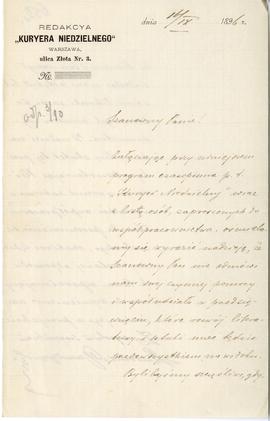 REDAKCYA
„KURYERA NIEDZIELNEGO“
WARSZAWA,
ulica Złota Nr. 3.
dnia 14/IX 1896 r.
№
odp. 3/10
Szanowny Panie!
Załączając przy niniejszem
program czasopisma p. t.
„Kuryer Niedzielny" wraz
z listą osób, zaproszonych do
współpracownictwa, ośmielamy
się wyrazić nadzieję, że
Szanowny Pan nie odmówi
nam swej czynnej pomocy
i współudziału w przedsięwzięciu,
które rozwój
przedewszystkiem na widoku.
Bylibyśmy szczęśliwi, gdy